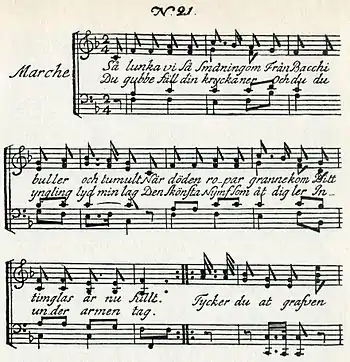 No. 21.
Marche
Så lunka vi så småningom Från Bacchi
Du gubbe fäll din krycka ner Och du du
buller och tumult När döden ro-par granne kom Ditt
yngling lyd min lag Den skönsta Nymf som åt dig ler In-
timglas är nu fullt. Tycker du at grafven
un.der armen tag.